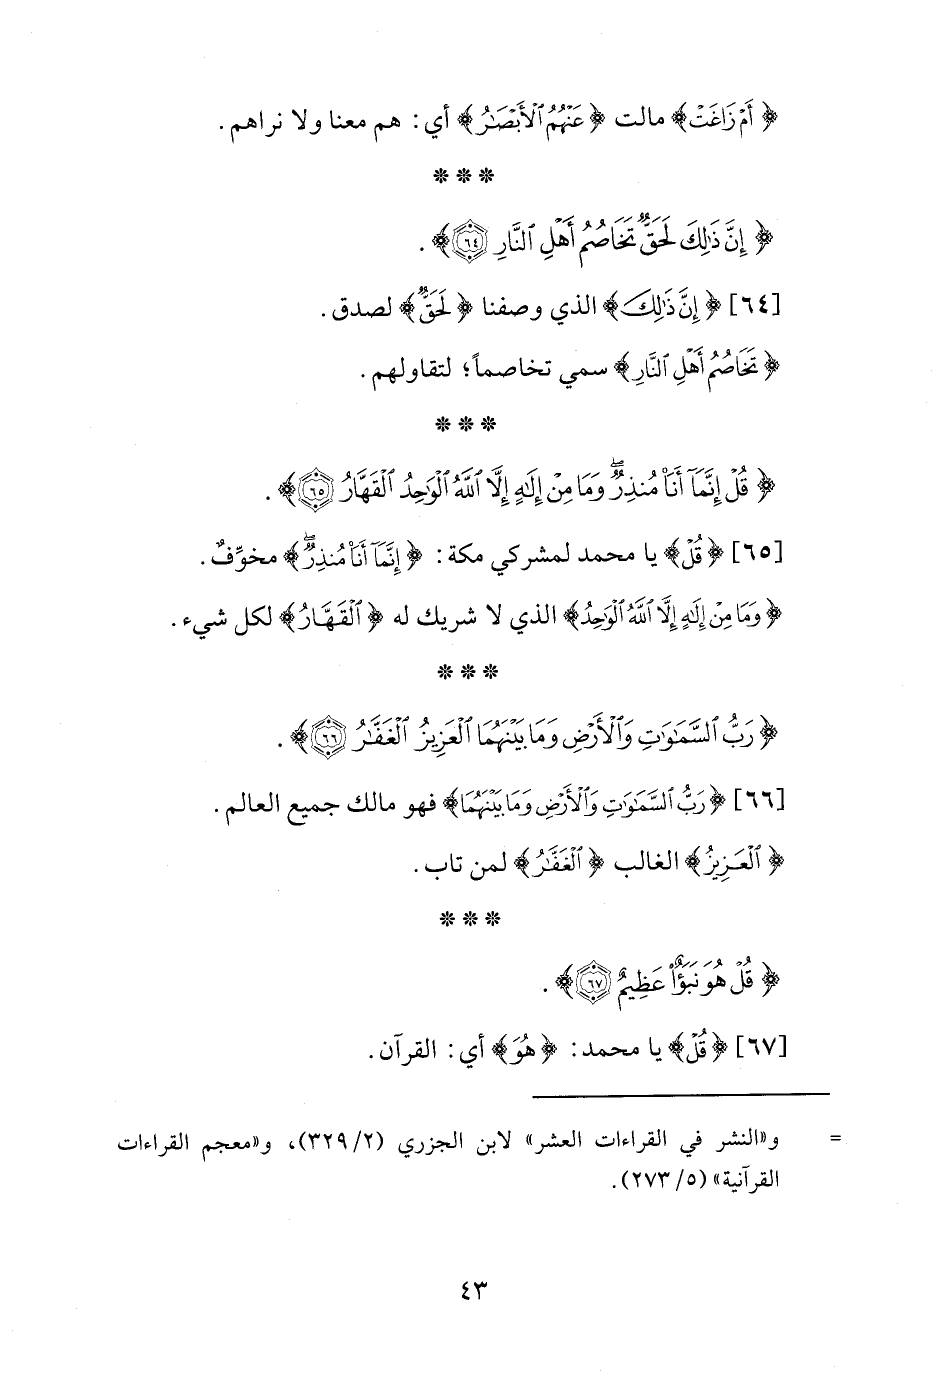 ﴿أَمْ زَاغَتْ﴾ مالت ﴿عَنْهُمُ ٱلْأَبْصَٰرُ﴾ أي: هم معنا ولا نراهم.
* * *
﴿إِنَّ ذَٰلِكَ لَحَقٌّ تَخَاصُمُ أَهْلِ ٱلنَّارِ ٦٤﴾.
[٦٤] ﴿إِنَّ ذَٰلِكَ﴾ الذي وصفنا ﴿لَحَقٌّ﴾ لصدق.
﴿تَخَاصُمُ أَهْلِ ٱلنَّارِ﴾ سمي تخاصماً؛ لتقاولهم.
* * *
﴿قُلْ إِنَّمَآ أَنَا۠ مُنذِرٌ ۖ وَمَا مِنْ إِلَٰهٍ إِلَّا ٱللَّهُ ٱلْوَٰحِدُ ٱلْقَهَّارُ ٦٥﴾.
[٦٥] ﴿قُلْ﴾ يا محمد لمشركي مكة: ﴿إِنَّمَآ أَنَا۠ مُنذِرٌ ۖ﴾ مخوِّفٌ.
﴿وَمَا مِنْ إِلَٰهٍ إِلَّا ٱللَّهُ ٱلْوَٰحِدُ﴾ الذي لا شريك له ﴿ٱلْقَهَّارُ﴾ لكل شيء.
* * *
﴿رَبُّ ٱلسَّمَٰوَٰتِ وَٱلْأَرْضِ وَمَا بَيْنَهُمَا ٱلْعَزِيزُ ٱلْغَفَّٰرُ ٦٦﴾.
[٦٦] ﴿رَبُّ ٱلسَّمَٰوَٰتِ وَٱلْأَرْضِ وَمَا بَيْنَهُمَا﴾ فهو مالك جميع العالم.
﴿ٱلْعَزِيزُ﴾ الغالب ﴿ٱلْغَفَّٰرُ﴾ لمن تاب.
* * *
﴿قُلْ هُوَ نَبَؤٌا۟ عَظِيمٌ ٦٧﴾.
[٦٧] ﴿قُلْ﴾ يا محمد: ﴿هُوَ﴾ أي: القرآن.
= و«النشر في القراءات العشر» لابن الجزري (٢/ ٣٢٩)، و«معجم القراءات
القرآنية» (٥/ ٢٧٣).
٤٣